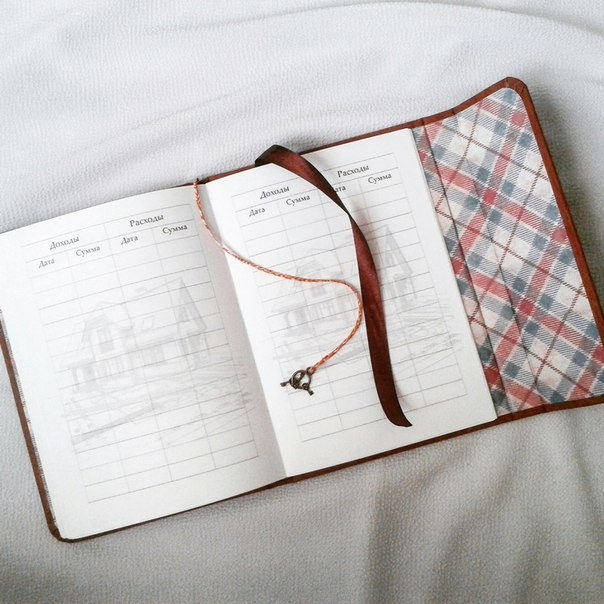 Доходы Расходы
Дата Сумма Дата Сумма
Доходы Расходы
Дата Сумма Дата Сумма